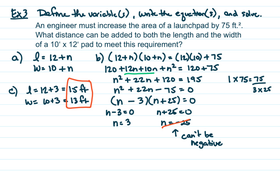 Ex3 Define the variable(s), write the equation(s), and solve.
An engineer must increase the area of a launchpad by 75 ft.².
What distance can be added to both the length and the width
of a 10' x 12' pad to meet this requirement?
a) l = 12 + n
w = 10 + n
b) (12+n)(10+n) = (12)(10) + 75
120 + 12n + 10n + n² = 120 + 75
n² + 22n + 120 = 195
n² + 22n - 75 = 0
(n - 3)(n + 25) = 0
n - 3 = 0 n + 25 = 0
n = 3 n = -25
↑ can't be
negative
1 x 75 = 75
3 x 25
c) l = 12 + 3 = 15 ft
w = 10 + 3 = 13 ft